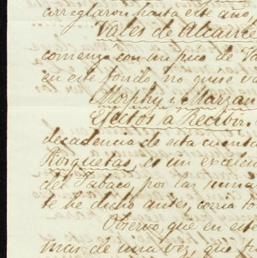 arreglaron hasta este año,
Vales de Alcance
comenzo con un pico de Va
en este fondo no quiso va
Morphy i Marzan
Efectos a Recibir.
decadencia de esta cuenta
Horquetas, es un exceden
del Tabaco, por las
te he dicho antes, corria to
Observo, que en este
mar de una vez, que